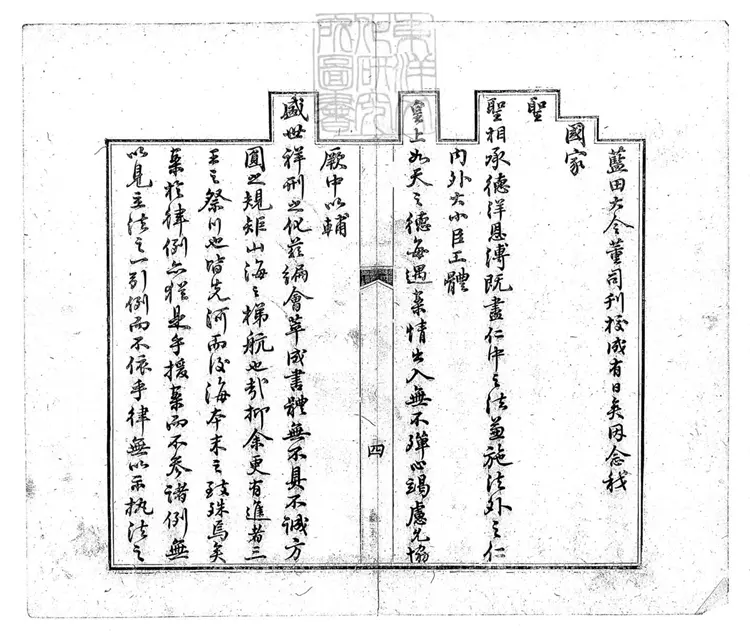 藍田大令董司刊校成有日矣因念我
國家
聖
聖相承德洋恩溥既盡仁中之法兼施法外之仁
內外大小臣工體
皇上如天之德每遇案情出入無不殫心竭慮允協
四
厥中以輔
盛世祥刑之化茲編會萃成書體無不具不誠方
圓之規矩山海之梯航也哉抑余更有進者三
王之祭川也皆先河而後海本末之致殊焉矣
案於律例亦猶是乎援案而不參諸例無
以見立法之一引例而不依乎律無以示执法之
東洋文
化研究
所圖書